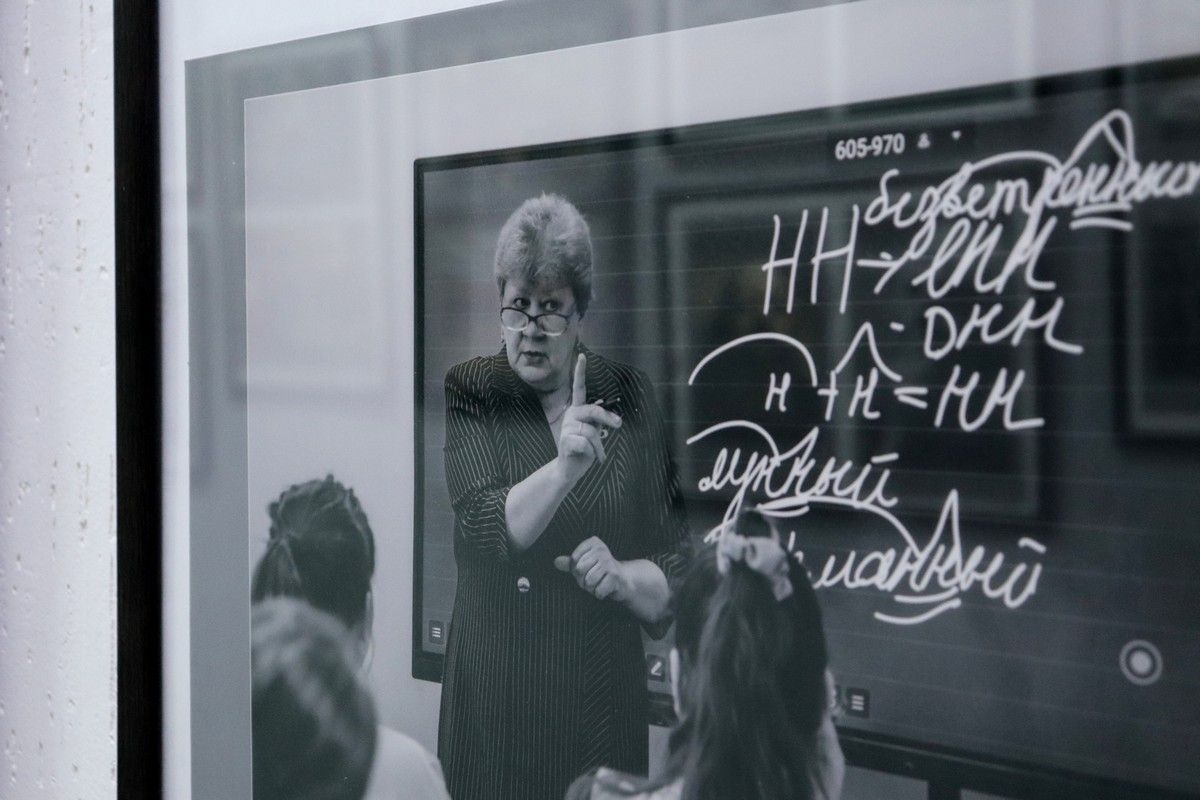 605-970
безветренный
НН → енн
- онн
н + н = нн
лунный
манный